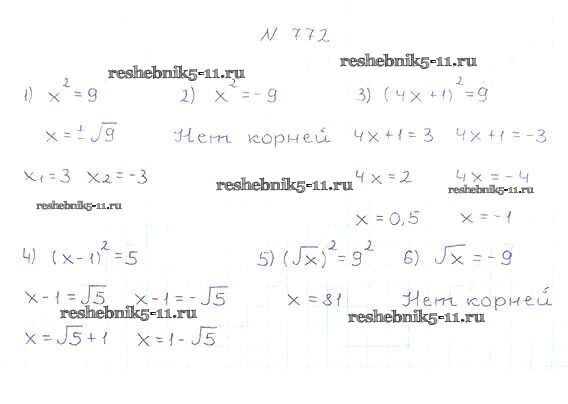 N 772
reshebnik5-11.ru
reshebnik5-11.ru
1) x² = 9
2) x² = - 9
3) (4x+1)² = 9
x = ±√9
Нет корней
4x+1 = 3   4x+1 = -3
x₁ = 3   x₂ = -3
reshebnik5-11.ru
4x = 2   4x = - 4
reshebnik5-11.ru
reshebnik5-11.ru
x = 0,5   x = -1
4) (x-1)² = 5
5) (√x)² = 9²
6) √x = - 9
x-1 = √5   x-1 = -√5
x = 81
Нет корней
reshebnik5-11.ru
reshebnik5-11.ru
x = √5+1   x = 1-√5